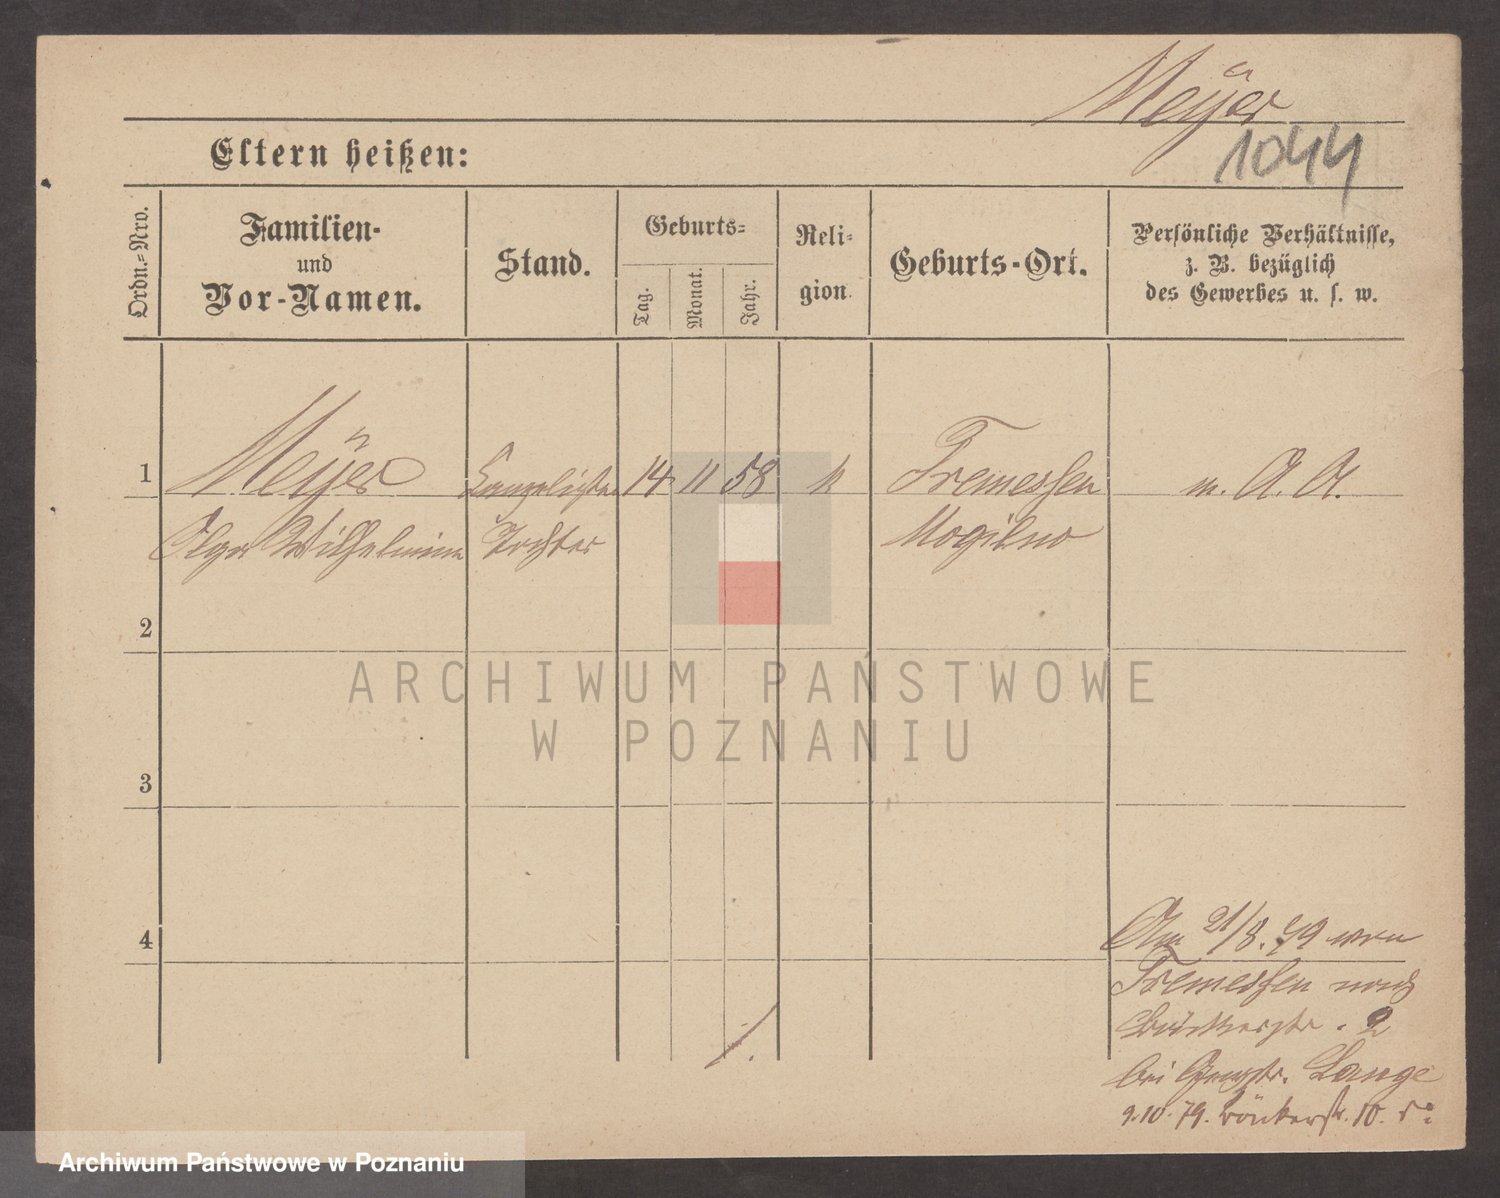 Meyer
1044
Eltern heißen:
Ordn.=Nro.
Familien-
und
Vor-Namen.
Stand.
Geburts=
Tag.
Monat.
Jahr.
Reli=
gion.
Geburts-Ort.
Persönliche Verhältnisse,
z. B. bezüglich
des Gewerbes u. s. w.
1
Meyer
Olga Wilhelmine
Tochter
14 11 58
Tremessen
Mogilno
m. A. A.
2
3
4
Am 21/8. 79 von
Tremessen nach
2
bei Lange
9.10.79. 10.
ARCHIWUM PAŃSTWOWE
W POZNANIU
Archiwum Państwowe w Poznaniu